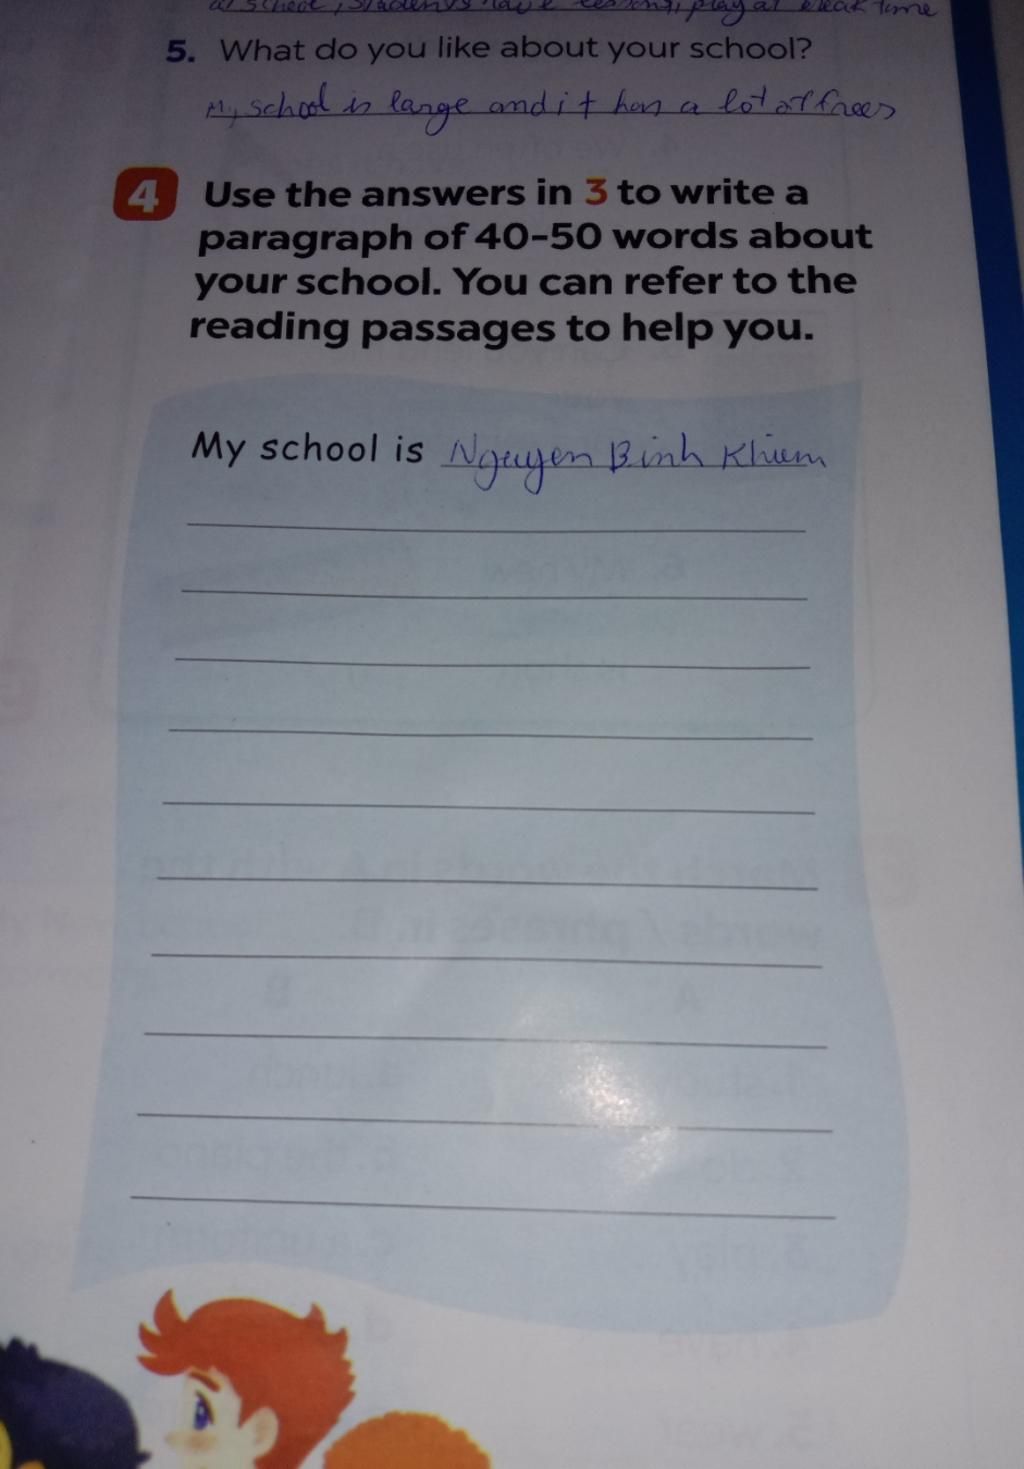 at school, students have lessons, play at break time
5. What do you like about your school?
My school is large and it has a lot of trees
4 Use the answers in 3 to write a
paragraph of 40-50 words about
your school. You can refer to the
reading passages to help you.
My school is Nguyen Binh Khiem